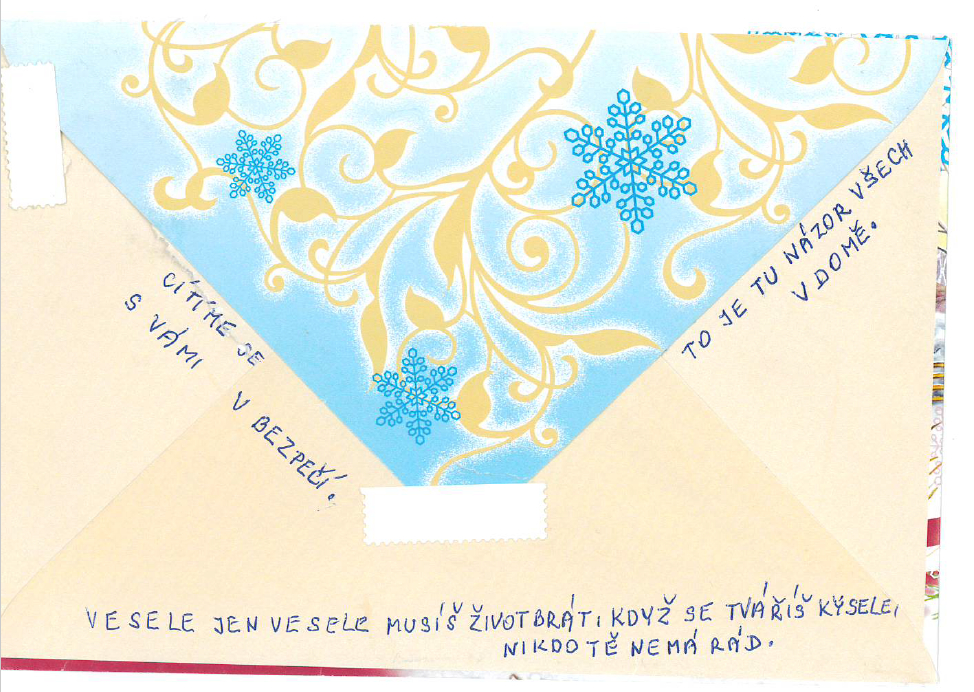 CÍTÍME SE
S VÁMI V BEZPEČÍ.
TO JE TU NÁZOR VŠECH
V DOMĚ.
VESELE JEN VESELE MUSÍŠ ŽIVOT BRÁT, KDYŽ SE TVÁŘÍŠ KYSELE,
NIKDO TĚ NEMÁ RÁD.